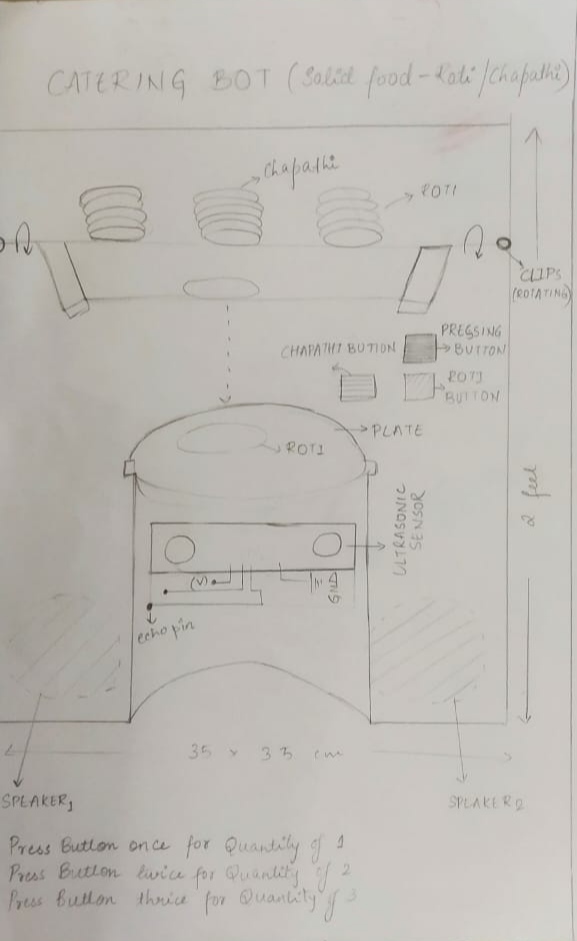 CATERING BOT (Solid food - Roti/Chapathi)
Chapathi
ROTI
CLIPS
(ROTATING)
PRESSING
BUTTON
CHAPATHI BUTTON
ROTI
BUTTON
PLATE
ROTI
2 feet
ULTRASONIC
SENSOR
(V)
GND
echo pin
35 x 35 cm
SPEAKER1
SPEAKER2
Press Button once for Quantity of 1
Press Button twice for Quantity of 2
Press Button thrice for Quantity of 3